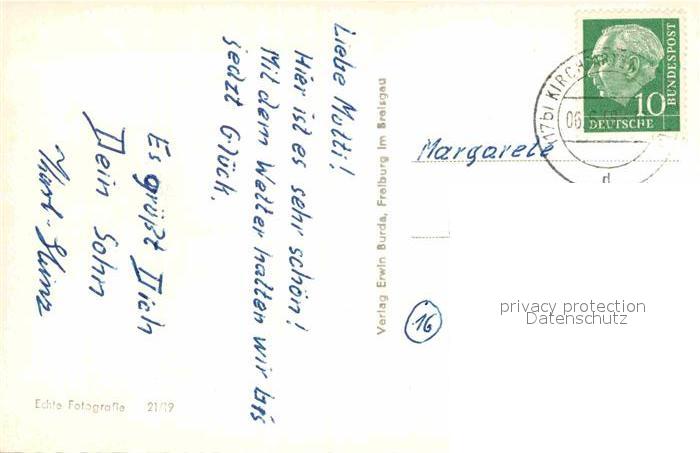 Liebe Mutti!
Hier ist es sehr schön!
Mit dem Wetter hatten wir bis
jedzt Glück.
Es grüßt Dich
Dein Sohn
Karl-Heinz
Verlag Erwin Burda, Freiburg im Breisgau
Echte Fotografie 21/19
BUNDESPOST
10
DEUTSCHE
(17b) KIRCHZARTEN
d
Margarete
16
privacy protection
Datenschutz